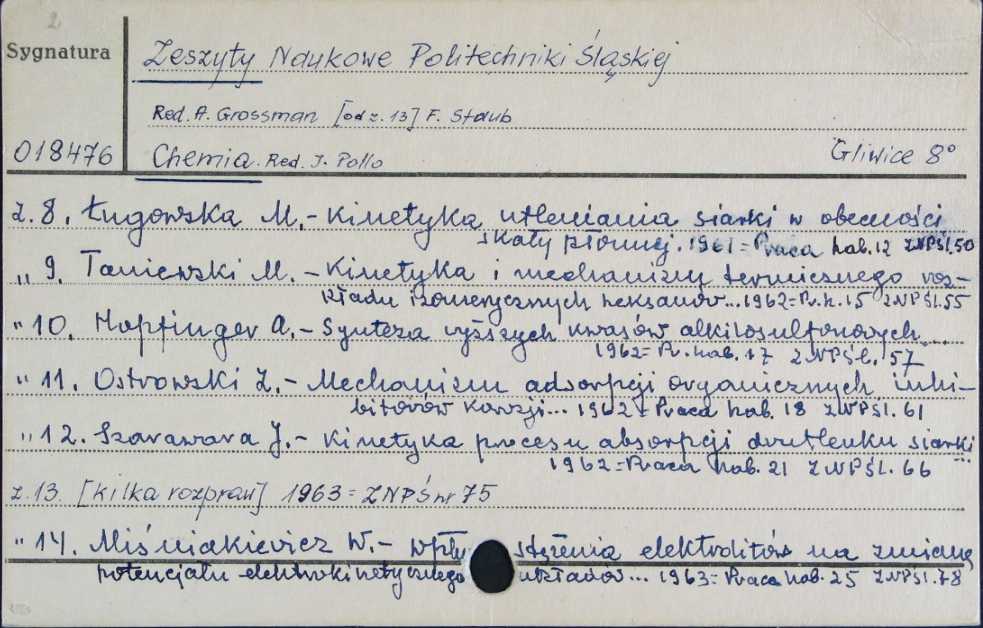 2
Sygnatura
Zeszyty Naukowe Politechniki Śląskiej
Red. A. Grossman [od z. 13] F. Staub
018476
Chemia. Red. J. Pollo
Gliwice 8°
z. 8. Ługowska M. - Kinetyka utleniania siarki w obecności
skały płonnej. 1961 = Praca hab. 12 ZNPŚl. 50
„ 9. Taniewski M. - Kinetyka i mechanizm termicznego roz-
kładu izomerycznych heksanów... 1962 = P. h. 15 ZNPŚl. 55
" 10. Hopfinger A. - Synteza wyższych kwasów alkilosulfonowych...
1962 = Pr. hab. 17 ZNPŚl. 57
" 11. Ostrowski Z. - Mechanizm adsorpcji organicznych inhi-
bitorów korozji... 1962 = Praca hab. 18 ZNPŚl. 61
" 12. Szarawara J. - Kinetyka procesu absorpcji dwutlenku siarki...
1962 = Praca hab. 21 ZNPŚl. 66
z. 13. [kilka rozpraw] 1963 = ZNPŚ nr 75
" 14. Miśniakiewicz W. - Wpły stężenia elektrolitów na zmianę
potencjału elektrokinetycznego układów... 1963 = Praca hab. 25 ZNPŚl. 78